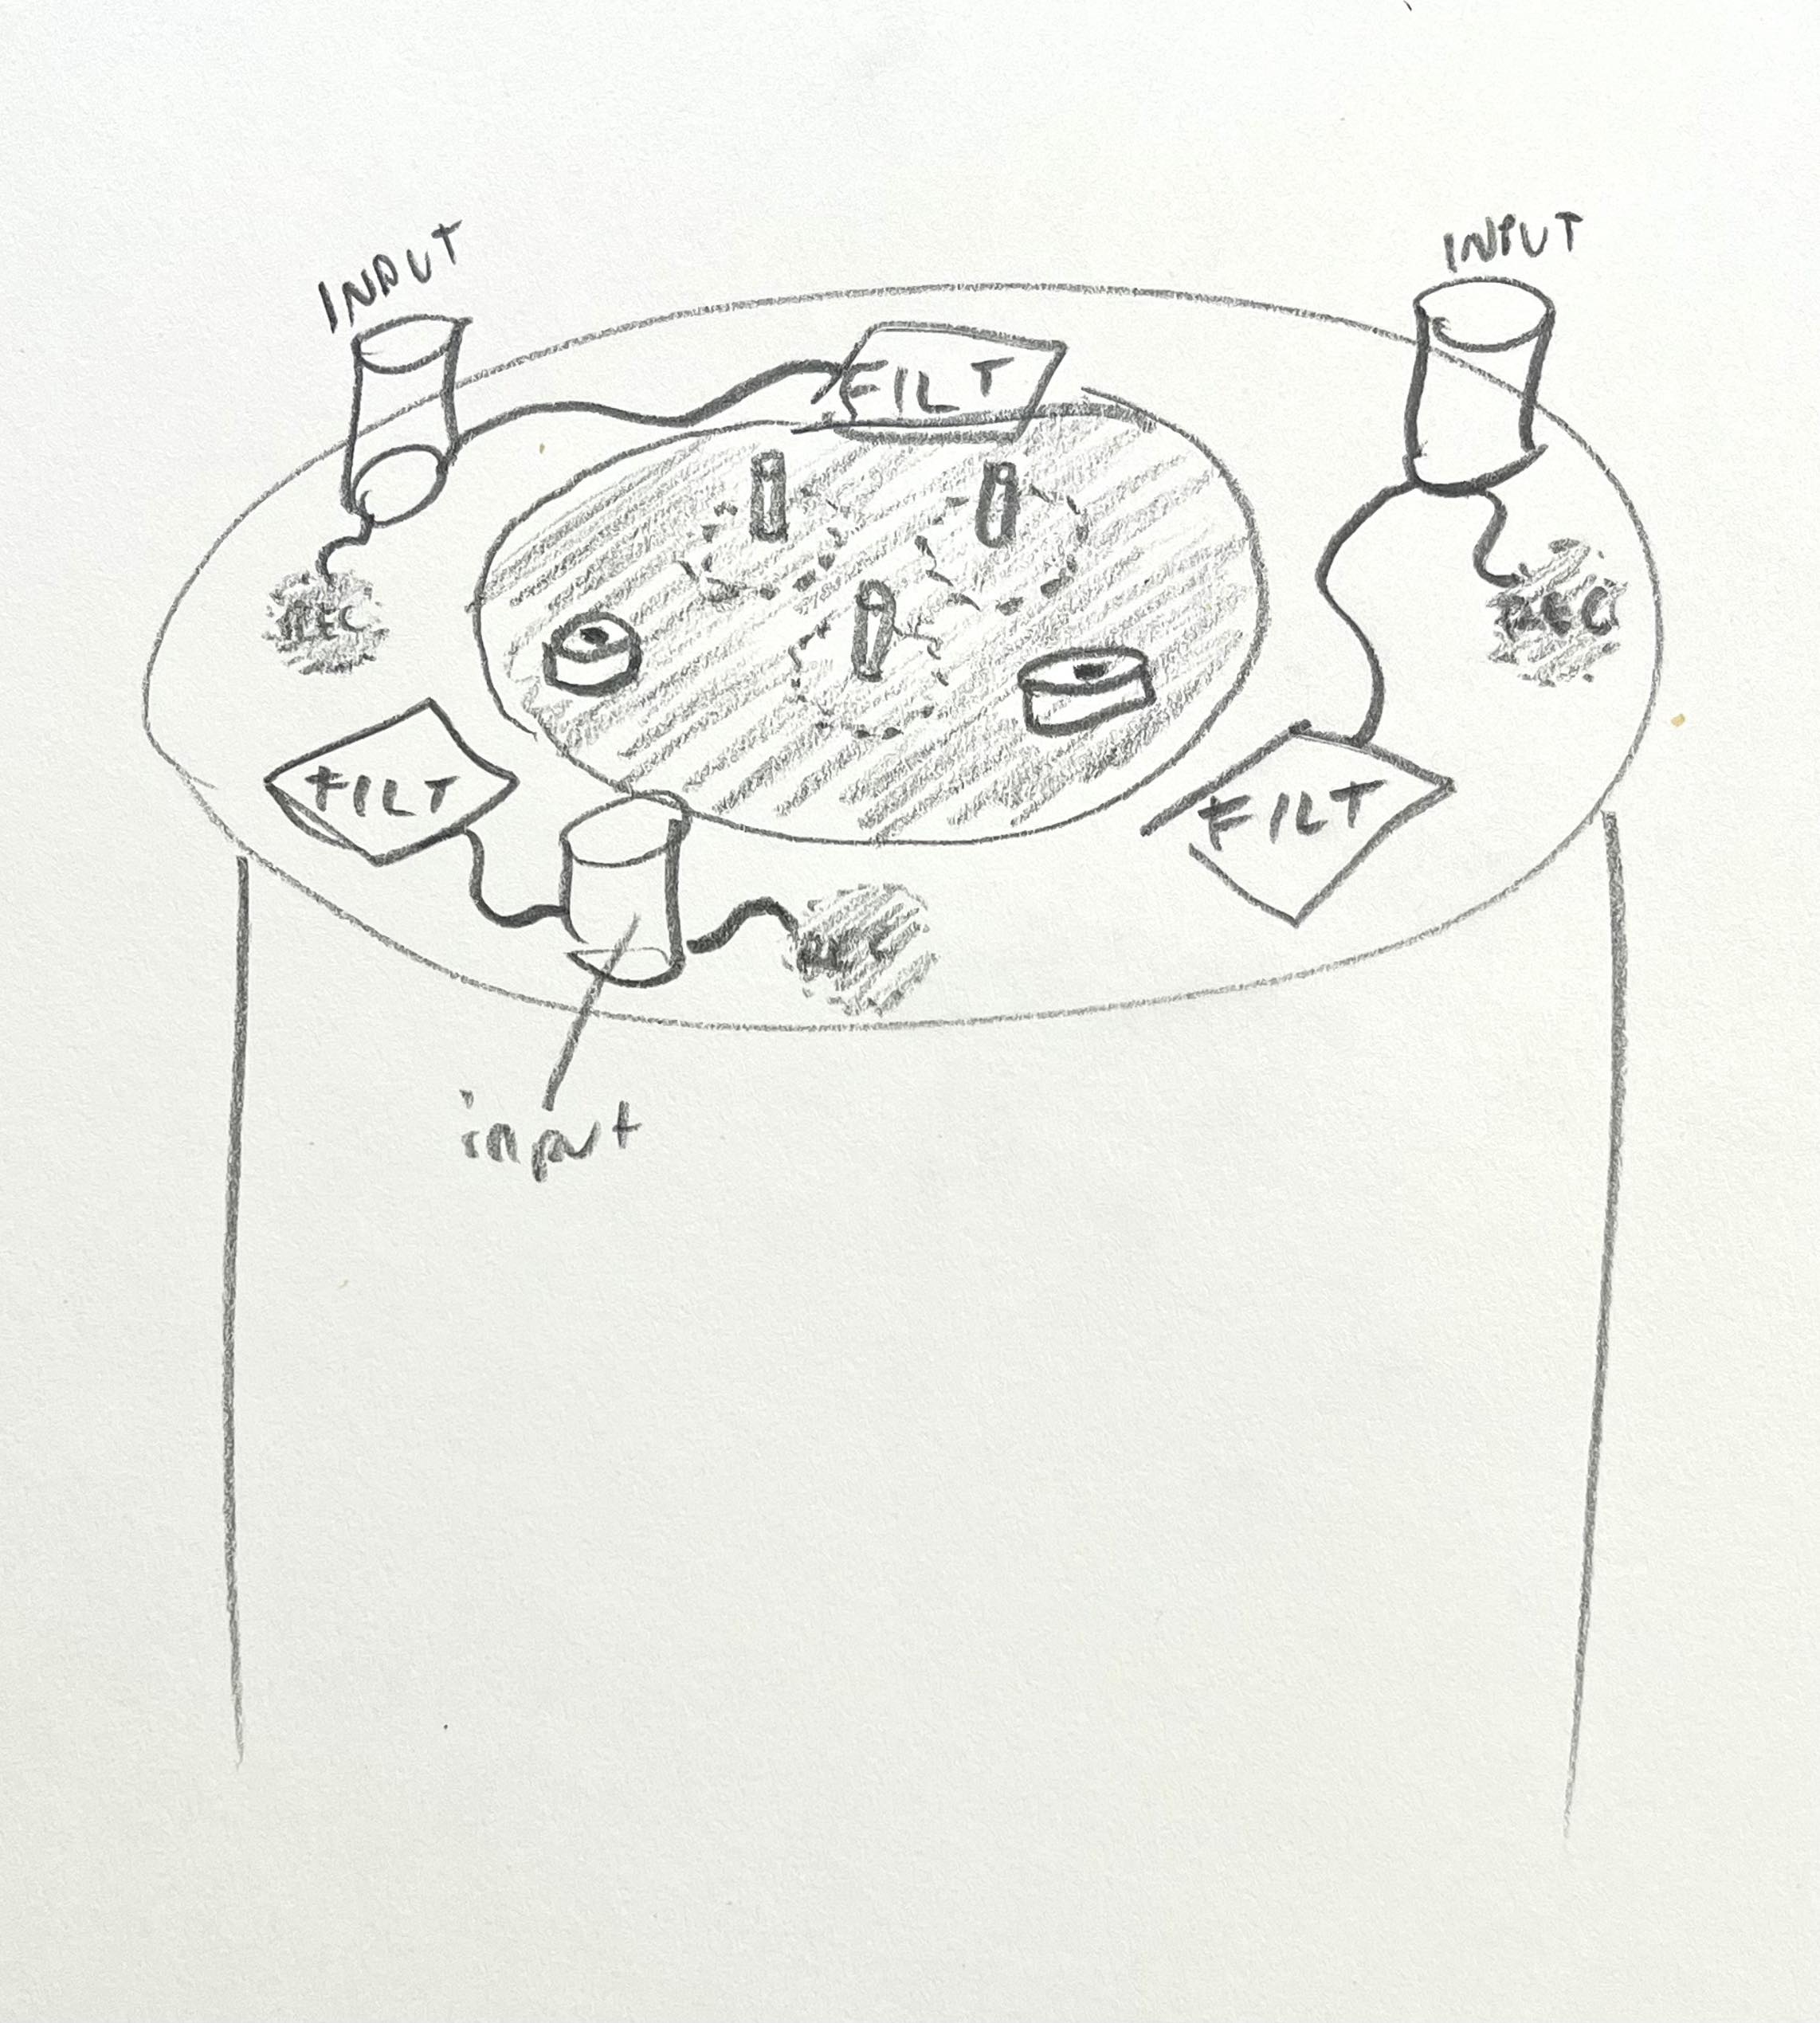 INPUT
INPUT
FILT
REC
REC
FILT
FILT
REC
input